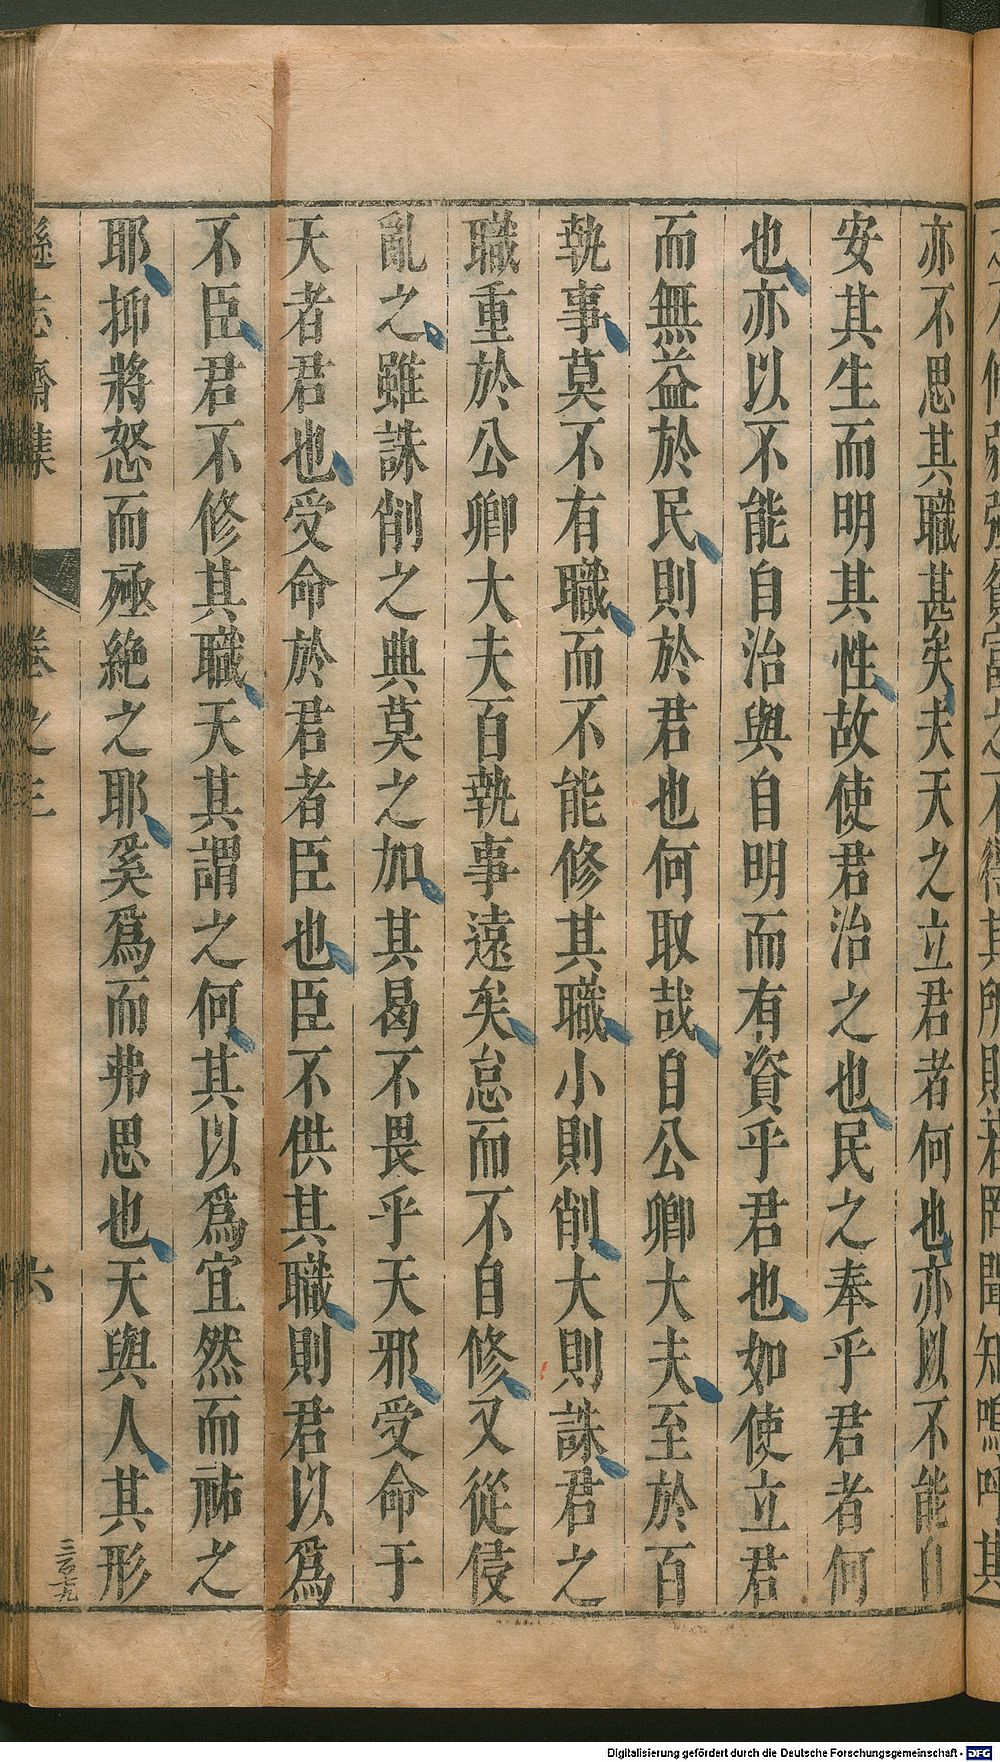 亦不思其職甚矣夫天之立君者何也亦以不能自
安其生而明其性故使君治之也民之奉乎君者何
也亦以不能自治與自明而有資乎君也如使立君
而無益於民則於君也何取哉自公卿大夫至於百
執事莫不有職而不能修其職小則削大則誅君之
職重於公卿大夫百執事遠矣怠而不自修又從侵
亂之雖誅削之典莫之加其曷不畏乎天邪受命于
天者君也受命於君者臣也臣不供其職則君以爲
不臣君不修其職天其謂之何其以爲宜然而祐之
耶抑將怒而殛絶之耶奚爲而弗思也天與人其形
遜志齋集 卷之三 六
Digitalisierung gefördert durch die Deutsche Forschungsgemeinschaft - DFG